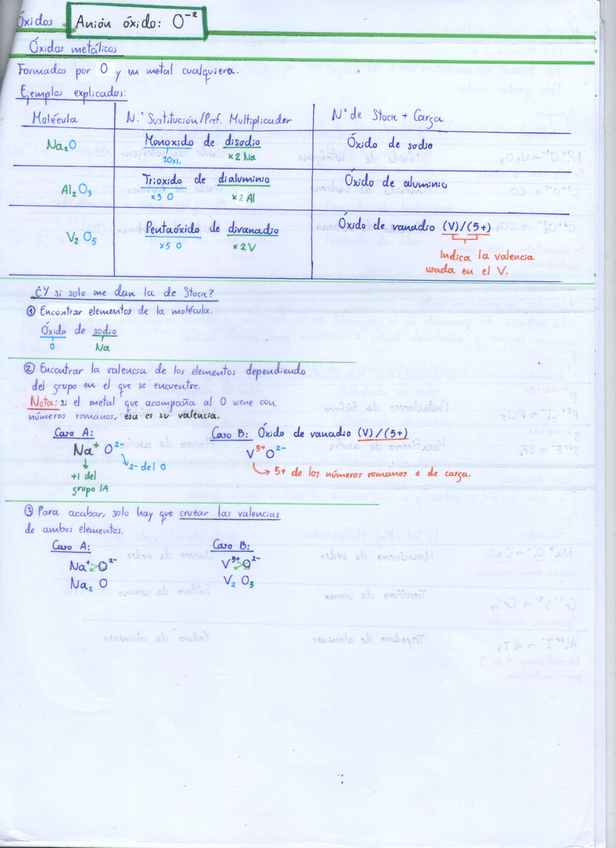 Óxidos Anión óxido: O⁻²
Óxidos metálicos
Formados por O y un metal cualquiera.
Ejemplos explicados:
Molécula N.º Sustitución/Pref. Multiplicador Nº de Stock + Carga
Na₂O Monoxido de disodio Óxido de sodio
x2 Na
Al₂O₃ Trioxido de dialuminio Óxido de aluminio
x3 O x2 Al
V₂O₅ Pentaóxido de divanadio Óxido de vanadio (V)/(5+)
x5 O x2 V
Indica la valencia
usada en el V.
¿Y si solo me dan la de Stock?
① Encontrar elementos de la molécula.
Óxido de sodio
O Na
② Encontrar la valencia de los elementos dependiendo
del grupo en el que se encuentre.
Nota: si el metal que acompaña al O viene con
números romanos, esa es su valencia.
Caso A: Caso B: Óxido de vanadio (V)/(5+)
Na⁺ O²⁻ V⁵⁺O²⁻
2- del O 5+ de los números romanos o de carga.
+1 del
grupo IA
③ Para acabar, solo hay que cruzar las valencias
de ambos elementos.
Caso A: Caso B:
Na⁺ O²⁻ V⁵⁺O²⁻
Na₂ O V₂ O₅